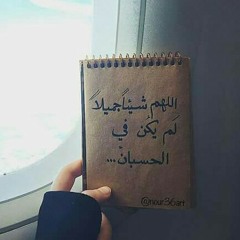 اللهم شيئاً جميلاً
لم يكن في
الحسبان...